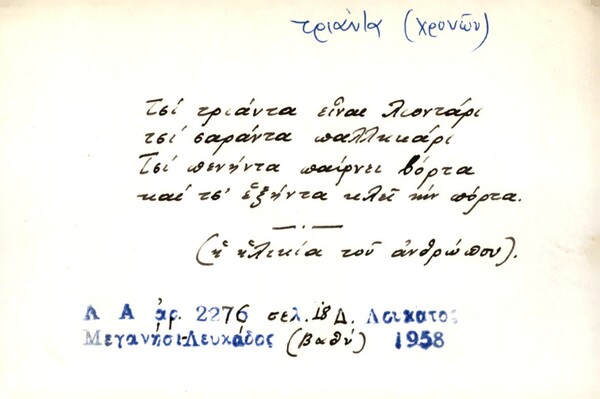 τριάντα (χρονῶν)
Τσί τριάντα εἶναι λιοντάρι
τσί σαράντα παλληκάρι
Τσί πενήντα παίρνει βόρτα
καί τσ' ἑξήντα κλεῖ τήν πόρτα.
(ἡ ἡλικία τοῦ ἀνθρώπου).
Λ Α ἀρ. 2276 σελ. 18 Δ. Λουκατος
Μεγανήσι-Λευκάδος (βαθύ) 1958